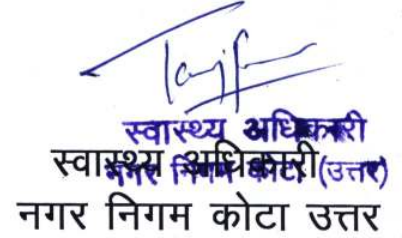 स्वास्थ्य अधिकारी
नगर निगम कोटा (उत्तर)
स्वास्थ्य अधिकारी
नगर निगम कोटा उत्तर